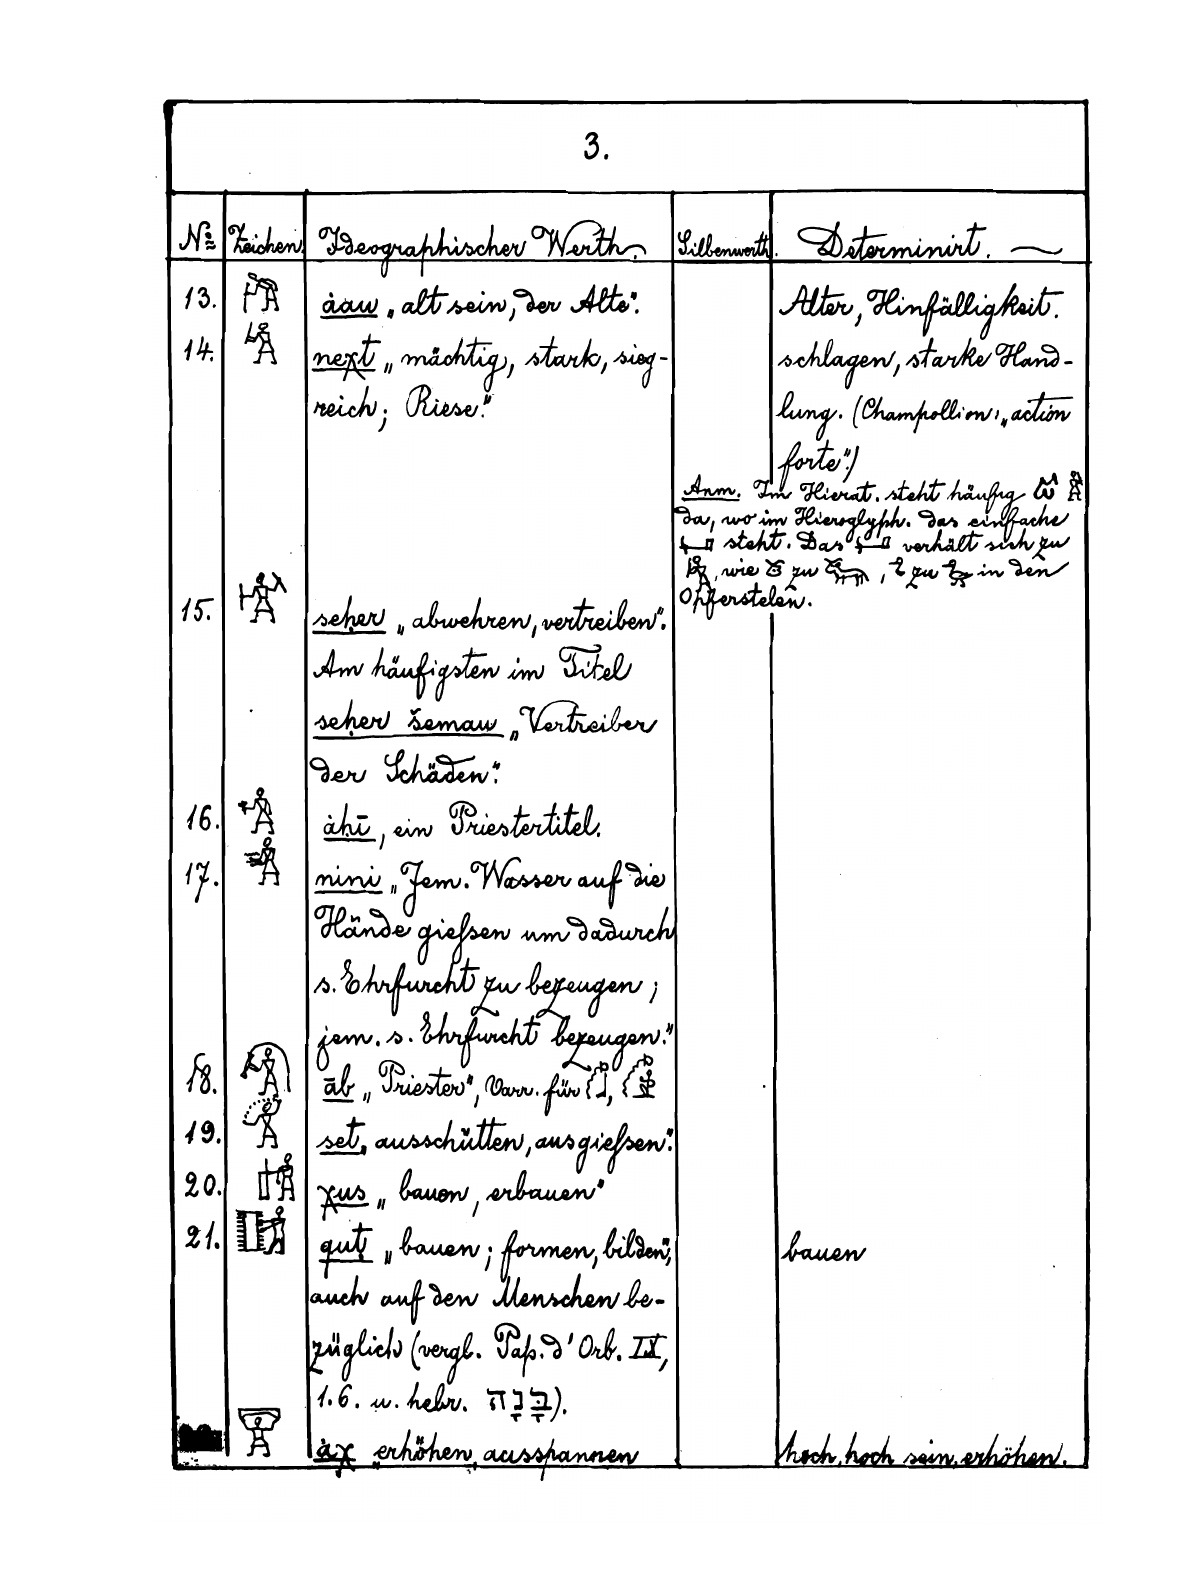 3.
No Zeichen. Ideographischer Werth. Silbenwerth. Determinirt.
13. ȧau „alt sein, der Alte“. Alter, Hinfälligkeit.
14. neχt „mächtig, stark, sieg- schlagen, starke Hand-
reich; Riese.“ lung. (Champollion: „action
forte“.)
Anm. Im Hierat. steht häufig
da, wo im Hieroglyph. das einfache
steht. Das verhält sich zu
, wie zu , zu in den
Opferstelen.
15. seḥer „abwehren, vertreiben“.
Am häufigsten im Titel
seḥer šemau „Vertreiber
der Schäden“.
16. ȧḥī, ein Priestertitel.
17. nini „Jem. Wasser auf die
Hände gießen um dadurch
s. Ehrfurcht zu bezeugen;
jem. s. Ehrfurcht bezeugen.“
18. āb „Priester“, Varr. für ,
19. set „ausschütten, ausgießen“.
20. χus „bauen, erbauen“
21. quṭ „bauen; formen, bilden“, bauen
auch auf den Menschen be-
züglich (vergl. Pap. d'Orb. IX,
1.6. u. hebr. בָּנָה).
ȧχ „erhöhen, ausspannen hoch, hoch sein, erhöhen.